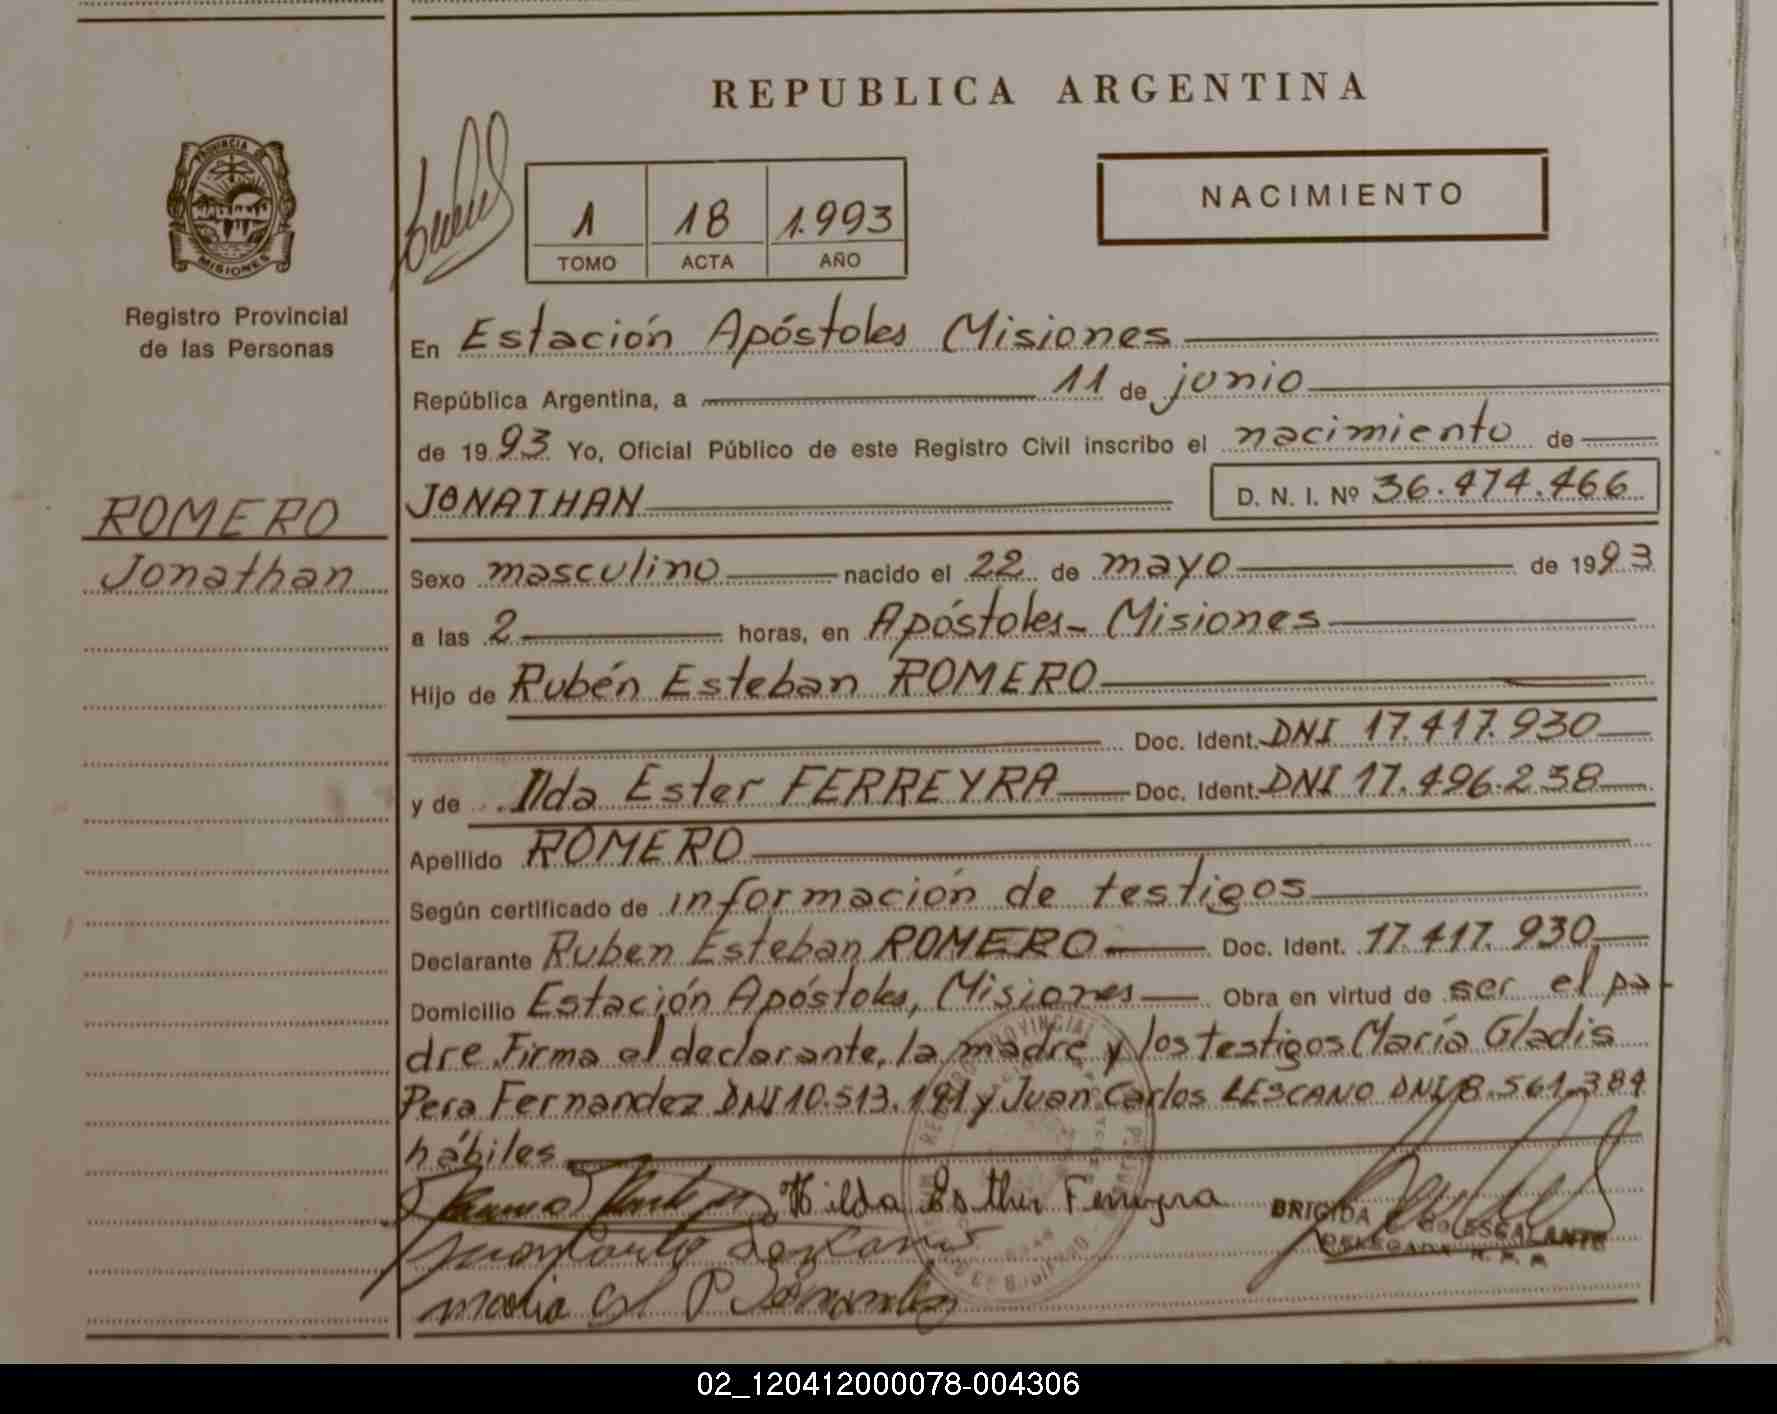 REPUBLICA ARGENTINA
PROVINCIA DE
MISIONES
Registro Provincial
de las Personas
1 18 1.993
TOMO ACTA AÑO
NACIMIENTO
En Estación Apóstoles Misiones
República Argentina, a 11 de junio
de 1993 Yo, Oficial Público de este Registro Civil inscribo el nacimiento de
ROMERO
Jonathan
JONATHAN D. N. I. Nº 36.474.466
Sexo masculino nacido el 22 de mayo de 1993
a las 2 horas, en Apóstoles - Misiones
Hijo de Rubén Esteban ROMERO
Doc. Ident. DNI 17.417.930
y de Ilda Ester FERREYRA Doc. Ident. DNI 17.496.238
Apellido ROMERO
Según certificado de información de testigos
Declarante Ruben Esteban ROMERO Doc. Ident. 17.417.930
Domicilio Estación Apóstoles, Misiones Obra en virtud de ser el pa-
dre. Firma el declarante, la madre y los testigos María Gladis
Pera Fernandez DNI 10.513.191 y Juan Carlos LESCANO DNI 8.561.384
hábiles
Hilda Esther Ferreyra
BRIGIDA G. de ESCALANTE
DELEGADA R. P. P.
Juan Carlos Lescano
Maria Gl P Fernandez
02_120412000078-004306